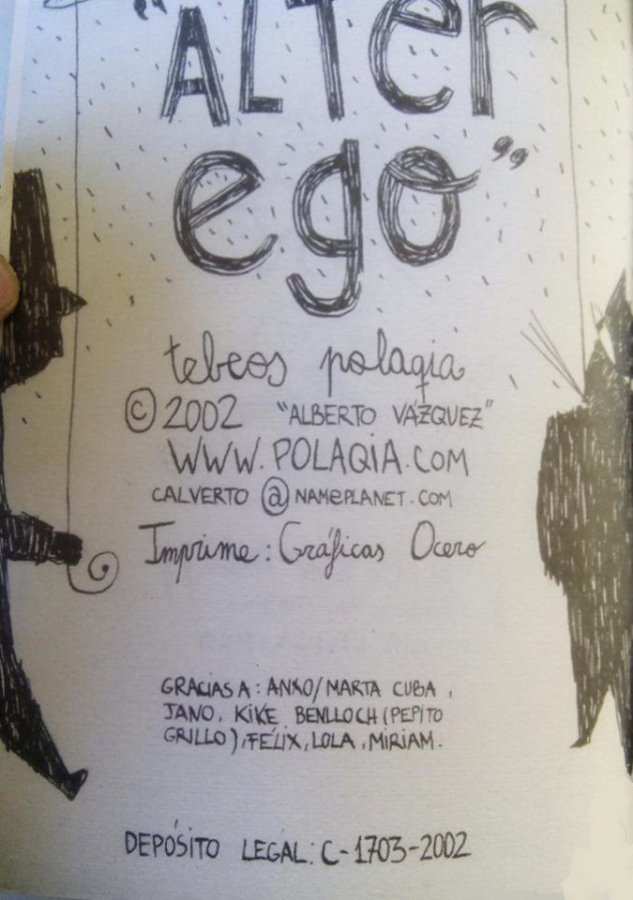 "ALTer
ego"
tebeos polaqia
© 2002 "ALBERTO VÁZQUEZ"
WWW.POLAQIA.COM
CALVERTO @ NAMEPLANET.COM
Imprime: Gráficas Ocero
GRACIAS A: ANXO/MARTA CUBA,
JANO, KIKE BENLLOCH (PEPITO
GRILLO), FÉLIX, LOLA, MIRIAM.
DEPÓSITO LEGAL: C-1703-2002